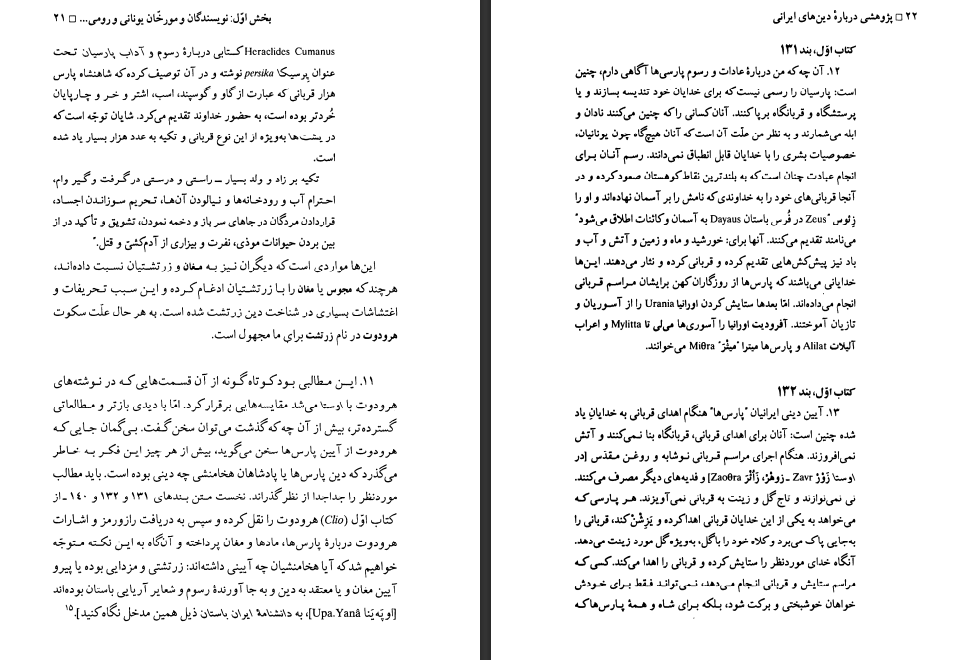 بخش اوّل: نویسندگان و مورخّان یونانی و رومی... □ ۲۱
Heraclides Cumanus کتابی دربارهٔ رسوم و آداب پارسیان تحت
عنوان پرسیکا persika نوشته و در آن توصیف کرده که شاهنشاه پارس
هزار قربانی که عبارت از گاو و گوسپند، اسب، اشتر و خر و چارپایان
خُردتر بوده است، به حضور خداوند تقدیم می‌کرد. شایان توجّه است که
در یشت‌ها به‌ویژه از این نوع قربانی و تکیه به عدد هزار بسیار یاد شده
است.
تکیه بر زاد و ولد بسیار ـ راستی و درستی در گرفت و گیر وام،
احترام آب و رودخانه‌ها و نیالودن آن‌ها، تحریم سوزاندن اجساد،
قراردادن مردگان در جاهای سر باز و دخمه نمودن، تشویق و تأکید در از
بین بردن حیوانات موذی، نفرت و بیزاری از آدم‌کشی و قتل.
این‌ها مواردی است که دیگران نیز به مغان و زرتشتیان نسبت داده‌اند،
هرچند که مجوس یا مغان را با زرتشتیان ادغام کرده و این سبب تحریفات و
اغتشاشات بسیاری در شناخت دین زرتشت شده است. به هر حال علّت سکوت
هرودوت در نام زرتشت برای ما مجهول است.
۱۱. این مطالبی بود کوتاه گونه از آن قسمت‌هایی که در نوشته‌های
هرودوت با اوستا می‌شد مقایسه‌هایی برقرار کرد. امّا با دیدی بازتر و مطالعاتی
گسترده‌تر، بیش از آن چه که گذشت می‌توان سخن گفت. بی‌گمان جایی که
هرودوت از آیین پارس‌ها سخن می‌گوید، بیش از هر چیز این فکر به خاطر
می‌گذرد که دین پارس‌ها یا پادشاهان هخامنشی چه دینی بوده است. باید مطالب
موردنظر را جداجدا از نظر گذراند. نخست متن بندهای ۱۳۱ و ۱۳۲ و ۱۴۰ ـ از
کتاب اوّل (Clio) هرودوت را نقل کرده و سپس به دریافت رازورمز و اشارات
هرودوت دربارهٔ پارس‌ها، مادها و مغان پرداخته و آن‌گاه به این نکته متوجّه
خواهیم شد که آیا هخامنشیان چه آیینی داشته‌اند: زرتشتی و مزدایی بوده یا پیرو
آیین مغان و یا معتقد به دین و به جا آورندهٔ رسوم و شعایر آریایی باستان بوده‌اند
[اوپَه‌یَنا Upa.Yanâ]، به دانشنامهٔ ایران باستان ذیل همین مدخل نگاه کنید].۱۵
۲۲ □ پژوهشی دربارهٔ دین‌های ایرانی
کتاب اوّل، بند ۱۳۱
۱۲. آن چه که من دربارهٔ عادات و رسوم پارسی‌ها آگاهی دارم، چنین
است: پارسیان را رسمی نیست که برای خدایان خود تندیسه بسازند و یا
پرستشگاه و قربانگاه برپا کنند. آنان‌کسانی را که چنین می‌کنند نادان و
ابله می‌شمارند و به نظر من علّت آن است که آنان هیچ‌گاه چون یونانیان،
خصوصیات بشری را با خدایان قابل انطباق نمی‌دانند. رسم آنان برای
انجام عبادت چنان است که به بلندترین نقاط کوهستان صعود کرده و در
آنجا قربانی‌های خود را به خداوندی که نامش را بر آسمان نهاده‌اند و او را
زئوس "Zeus در فُرس باستان Dayaus به آسمان و کائنات اطلاق می‌شود"
می‌نامند تقدیم می‌کنند. آنها برای: خورشید و ماه و زمین و آتش و آب و
باد نیز پیش‌کش‌هایی تقدیم کرده و قربانی کرده و نثار می‌دهند. این‌ها
خدایانی می‌باشند که پارس‌ها از روزگاران کهن برایشان مراسم قربانی
انجام می‌داده‌اند. امّا بعدها ستایش کردن اورانیا Urania را از آسوریان و
تازیان آموختند. آفرودیت اورانیا را آسوری‌ها می‌لی تا Mylitta و اعراب
آلیلات Alilat و پارس‌ها میترا "میثْرَ" Miθra می‌خوانند.
کتاب اوّل، بند ۱۳۲
۱۳. آیین دینی ایرانیان "پارس‌ها" هنگام اهدای قربانی به خدایانِ یاد
شده چنین است: آنان برای اهدای قربانی، قربانگاه بنا نمی‌کنند و آتش
نمی‌افروزند. هنگام اجرای مراسم قربانی نوشابه و روغن مقدّس [در
اوستا زَوْرْ Zavr ـ زوهْرْ، زَاُثْرَ Zaoθra] و فدیه‌های دیگر مصرف می‌کنند.
نی نمی‌نوازند و تاج گل و زینت به قربانی نمی‌آویزند. هر پارسی که
می‌خواهد به یکی از این خدایان قربانی اهدا کرده و یَزِشْن کند، قربانی را
به‌جایی پاک می‌برد و کلاه خود را با گل، به‌ویژه گل مورد زینت می‌دهد.
آنگاه خدای موردنظر را ستایش کرده و قربانی را اهدا می‌کند. کسی که
مراسم ستایش و قربانی انجام می‌دهد، نمی‌تواند فقط برای خودش
خواهان خوشبختی و برکت شود، بلکه برای شاه و همهٔ پارس‌ها که